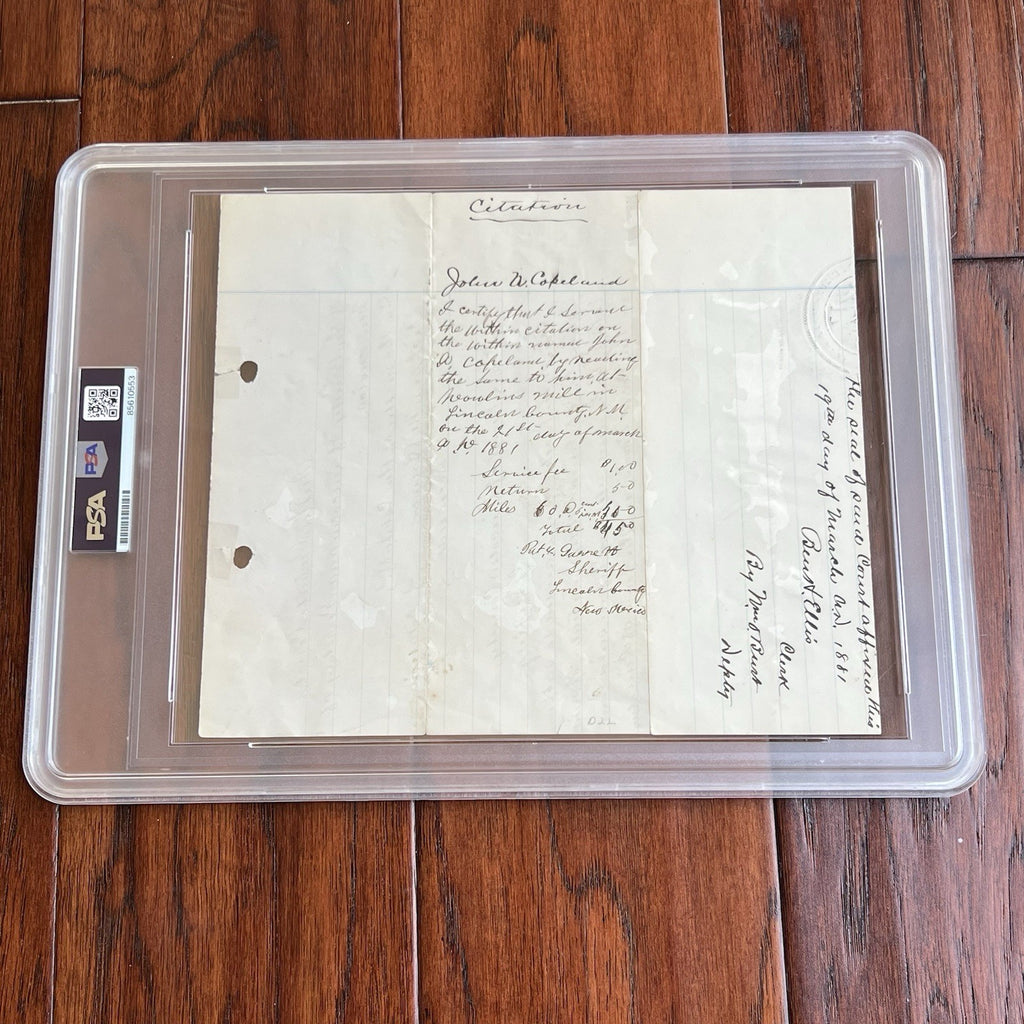 Citation
John N. Copeland
I certify that I served
the within citation on
the within named John
N Copeland by reading
the same to him, at
Nowlins Mill in
Lincoln County, N.M.
on the 21st day of March
A D. 1881
Service fee $1.00
Return 50
Miles
Total $4.50
Pat. F. Garrett
Sheriff
Lincoln County
New Mexico
D22
the seal of said Court affixed this
19th day of March A.D. 1881
Ben H. Ellis
Clerk
By
Deputy
PSA
PSA
85610553